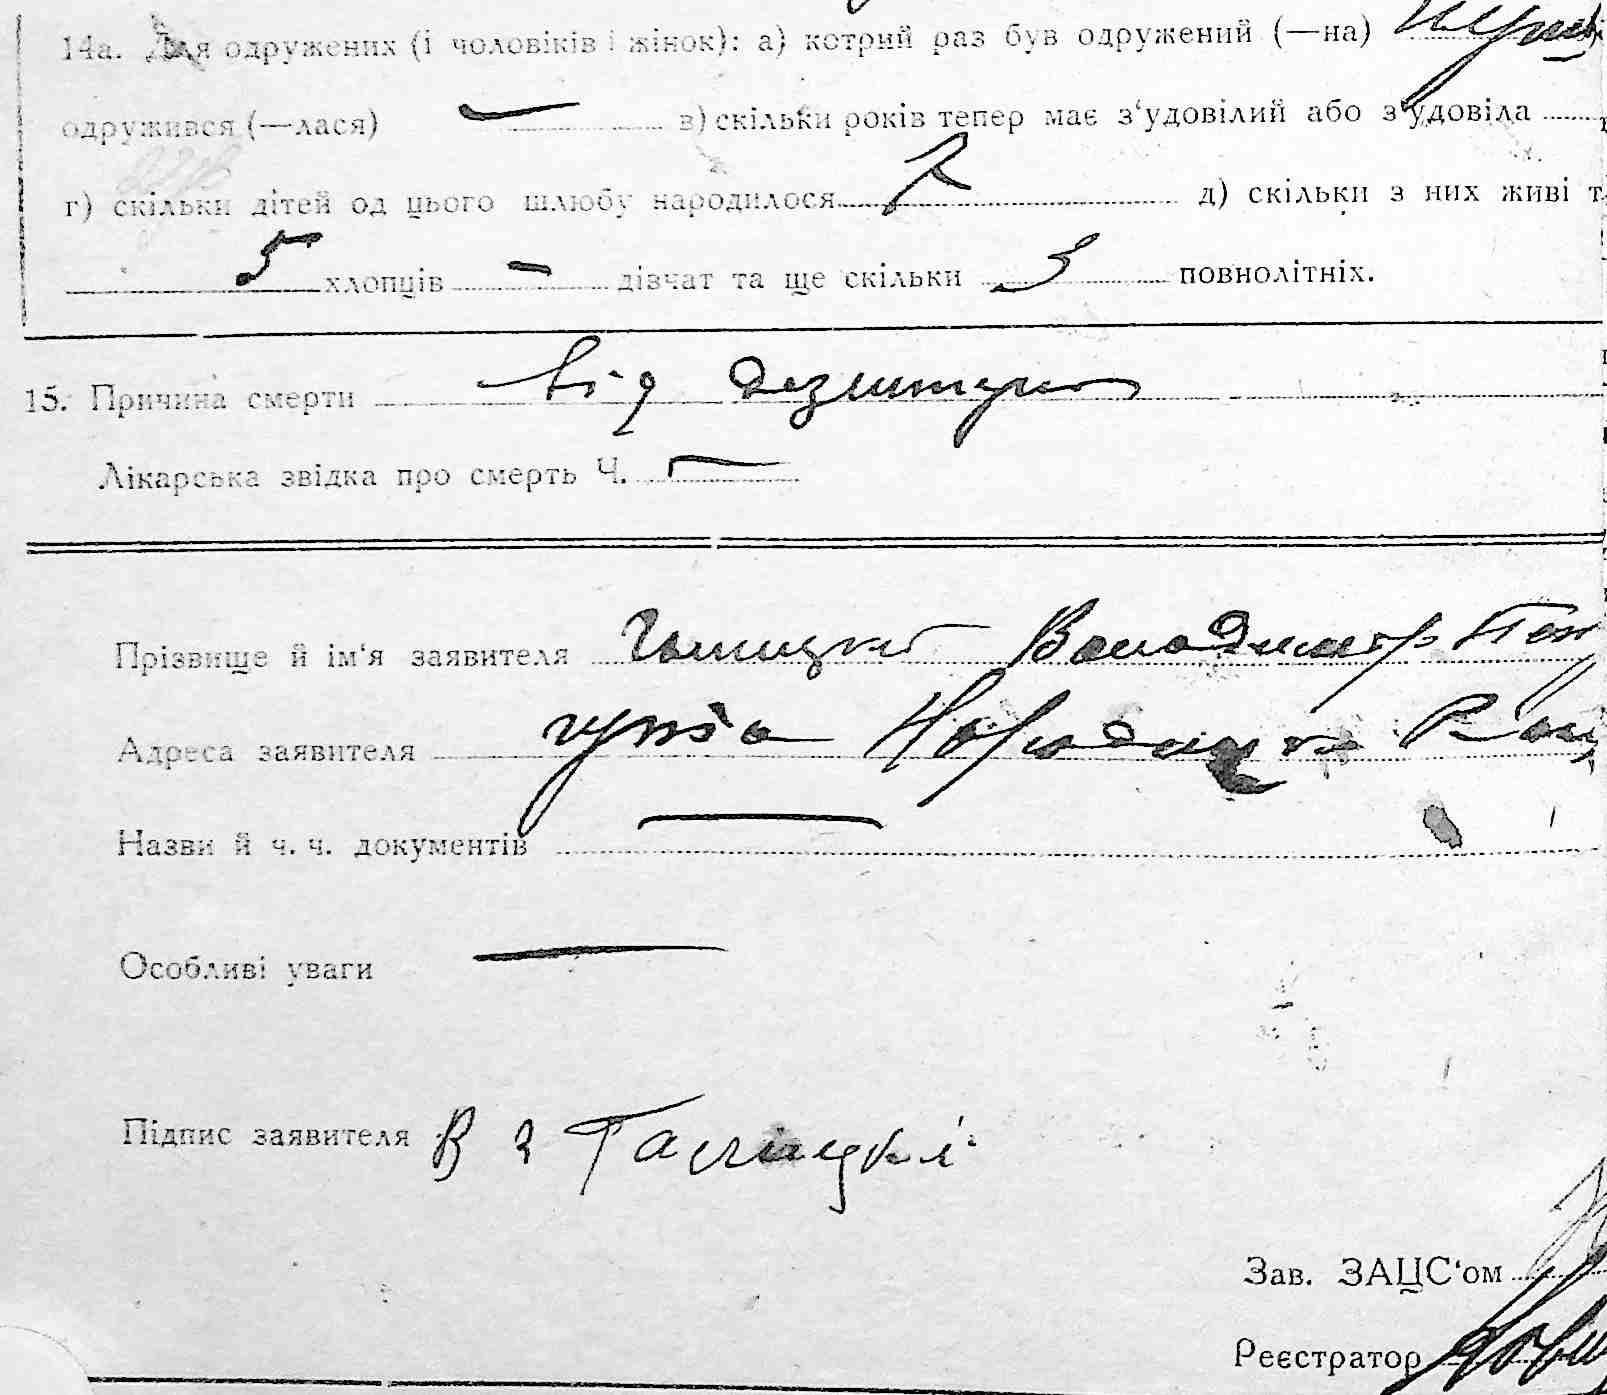 14а. Для одружених (і чоловіків і жінок): а) котрий раз був одружений (—на)
одружився (—лася) — в) скільки років тепер має з‘удовілий або з‘удовіла
г) скільки дітей од цього шлюбу народилося 7 д) скільки з них живі т
5 хлопців — дівчат та ще скільки 3 повнолітніх.
15. Причина смерти від дезинтерії
Лікарська звідка про смерть Ч. —
Прізвище й ім‘я заявителя Галицкий Володимир
Адреса заявителя Народицька
Назви й ч. ч. документів —
Особливі уваги —
Підпис заявителя В З Галицкі
Зав. ЗАЦС‘ом
Реєстратор